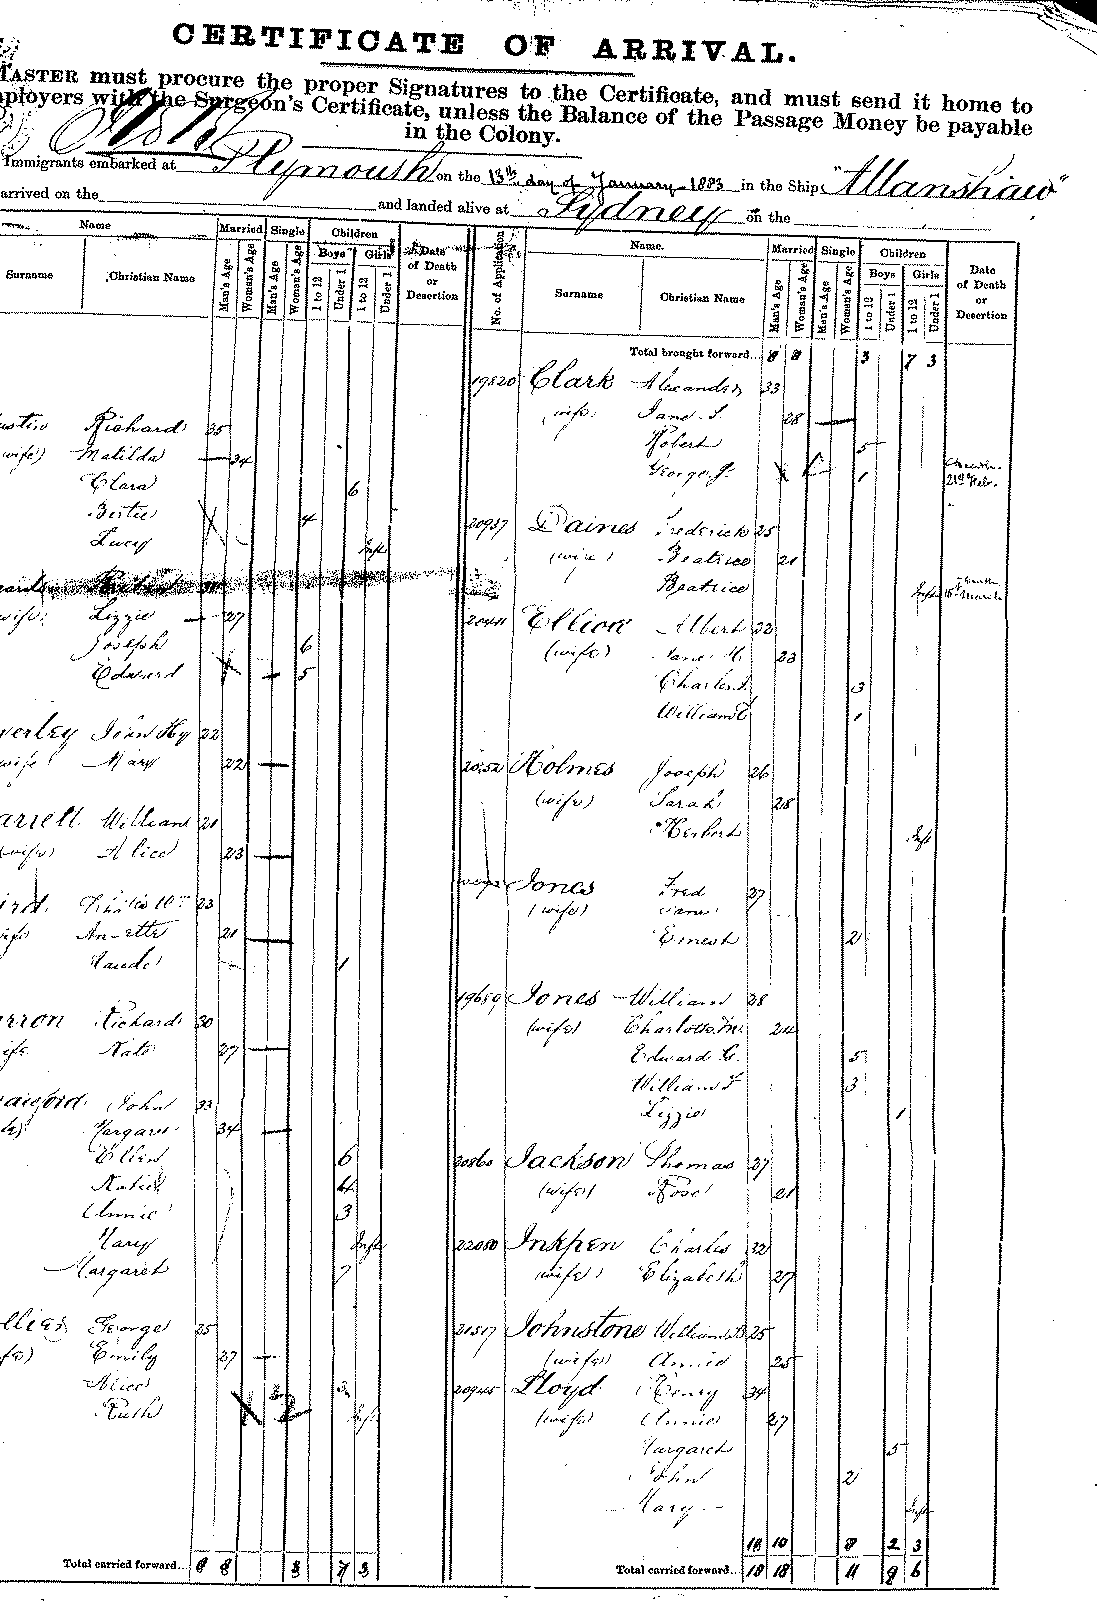 CERTIFICATE OF ARRIVAL.
MASTER must procure the proper Signatures to the Certificate, and must send it home to
employers with the Surgeon's Certificate, unless the Balance of the Passage Money be payable
in the Colony.
Immigrants embarked at Plymouth on the 13th day of January 1883 in the Ship "Allanshaw"
arrived on the and landed alive at Sydney on the
Name
Surname
Christian Name
Married
Man's Age
Woman's Age
Single
Man's Age
Woman's Age
Children
Boys
1 to 12
Under 1
Girls
1 to 12
Under 1
Date of Death or Desertion
Richard 35
wife) Matilda 34
Clara 6
Bertie 4
Lucy Inft
wife) Lizzie 27
Joseph 6
Edward 5
John Hy 22
wife) Mary 22
William 21
(wife) Alice 23
23
Annette 21
Maude 1
Richard 30
Kate 27
John 33
Margaret 34
Ellen 6
Katie 4
Annie 3
Mary Inft
Margaret 7
George 25
Emily 27
Alice 2
Ruth Inft
Total carried forward... 8 8 3 7 3
No. of Application
Name.
Surname
Christian Name
Married
Man's Age
Woman's Age
Single
Man's Age
Woman's Age
Children
Boys
1 to 12
Under 1
Girls
1 to 12
Under 1
Date of Death or Desertion
Total brought forward... 8 8 3 7 3
19820 Clark Alexander 33
wife Jane S. 28
Robert 5
George J. 1 21st Feb.
20937 Daines Frederick 25
(wife) Beatrice 21
Beatrice Inft March
Elliott Albert 22
(wife) Jane H. 23
Charles J. 3
William C 1
Holmes Joseph 26
(wife) Sarah 28
Herbert Inft
Jones Fred 27
(wife) Jane
Ernest 2
19689 Jones William 28
(wife) Charlotte M. 24
Edward G. 5
William F 3
Lizzie 1
20860 Jackson Thomas 27
(wife) Rose 21
22080 Inkpen Charles 32
wife) Elizabeth 27
21517 Johnstone William 25
(wife) Annie 25
20945 Lloyd Henry 34
(wife) Annie 27
Margaret 5
John 2
Mary Inft
10 10 8 2 3
Total carried forward... 18 18 11 9 6